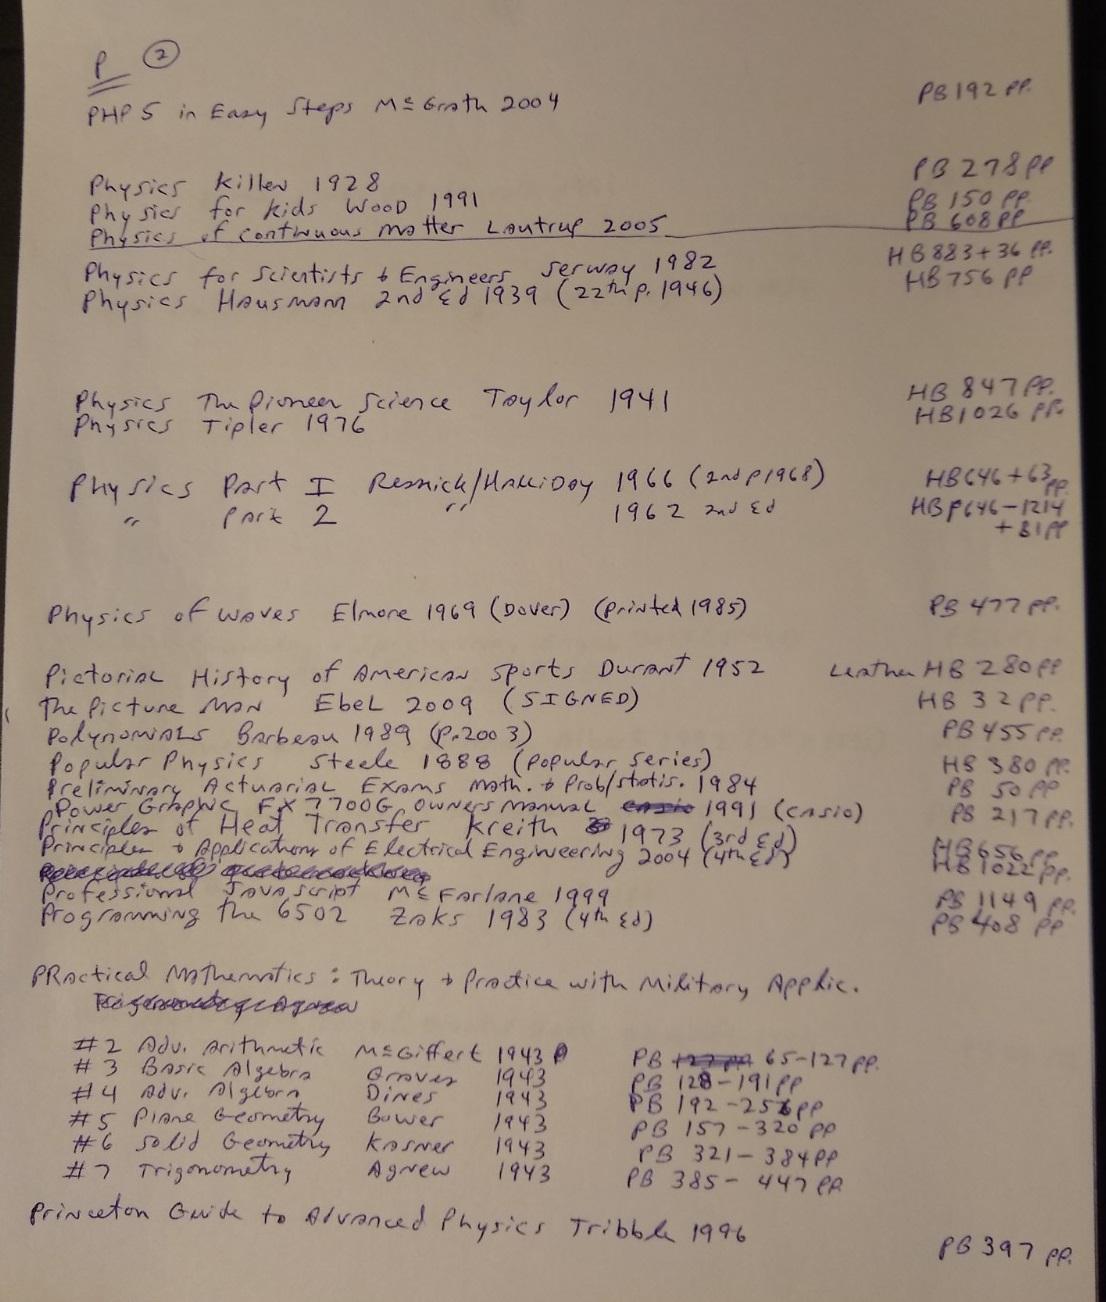 P ②
PHP 5 in Easy Steps McGrath 2004 PB 192 pp.
Physics Killen 1928 PB 278 pp
Physics for kids Wood 1991 PB 150 pp.
Physics of Continuous Matter Lautrup 2005 PB 608 pp
Physics for Scientists + Engineers Serway 1982 HB 883+36 pp.
Physics Hausmann 2nd Ed 1939 (22th p. 1946) HB 756 pp
Physics The Pioneer Science Taylor 1941 HB 847 pp.
Physics Tipler 1976 HB 1026 pp.
Physics Part I Resnick/Halliday 1966 (2nd p 1968) HB 646 + 63 pp.
" Part 2 " 1962 2nd Ed HB p646-1214
+ 81 pp
Physics of Waves Elmore 1969 (Dover) (Printed 1985) PB 477 pp.
Pictorial History of American Sports Durant 1952 Leather HB 280 pp
The Picture Man Ebel 2009 (SIGNED) HB 32 pp.
Polynomials Barbeau 1989 (p. 2003) PB 455 pp.
Popular Physics Steele 1888 (Popular Series) HB 380 pp.
Preliminary Actuarial Exams Math. + Prob/statis. 1984 PB 50 pp
Power Graphic FX 7700G Owners Manual 1991 (Casio) PB 217 pp.
Principles of Heat Transfer Kreith 1973 (3rd Ed) HB 656 pp
Principles + Applications of Electrical Engineering 2004 (4th Ed) HB 1022 pp.
Professional JavaScript McFarlane 1999 PB 1149 pp.
Programming the 6502 Zaks 1983 (4th Ed) PB 408 pp
PRactical Mathematics: Theory + Practice with Military Applic.
#2 Adv. Arithmetic McGiffert 1943 PB 65-127 pp.
#3 Basic Algebra Graves 1943 PB 128-191 pp
#4 Adv. Algebra Dines 1943 PB 192-256 pp
#5 Plane Geometry Bower 1943 PB 157-320 pp
#6 Solid Geometry Kasner 1943 PB 321-384 pp
#7 Trigonometry Agnew 1943 PB 385-447 pp
Princeton Guide to Advanced Physics Tribble 1996 PB 397 pp.